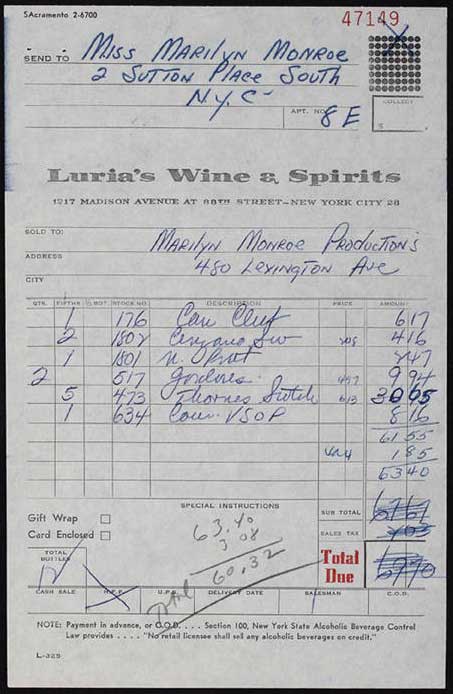 SAcramento 2-6700
47149
SEND TO Miss Marilyn Monroe
2 Sutton Place South
N.Y.C-
APT. NO. 8E
COLLECT
$
Luria's Wine & Spirits
1217 MADISON AVENUE AT 88TH STREET-NEW YORK CITY 28
SOLD TO: Marilyn Monroe Productions
ADDRESS 480 Lexington Ave
CITY
QTS. FIFTHS ½ BOT. STOCK NO. DESCRIPTION PRICE AMOUNT
1 176 617
2 1802 Cinzano 208 416
1 1801 N. 247
2 517 Gordons 497 994
5 473 Thornes 613 3065
1 634 VSOP 816
6155
185
6340
SPECIAL INSTRUCTIONS
Gift Wrap
Card Enclosed
63.40
3 08
60.32
SUB TOTAL
SALES TAX
TOTAL BOTTLES
Total Due
CASH SALE DELIVERY DATE SALESMAN C.O.D.
NOTE: Payment in advance, or C.O.D. . . . Section 100, New York State Alcoholic Beverage Control
Law provides . . . . "No retail licensee shall sell any alcoholic beverages on credit."
L-325